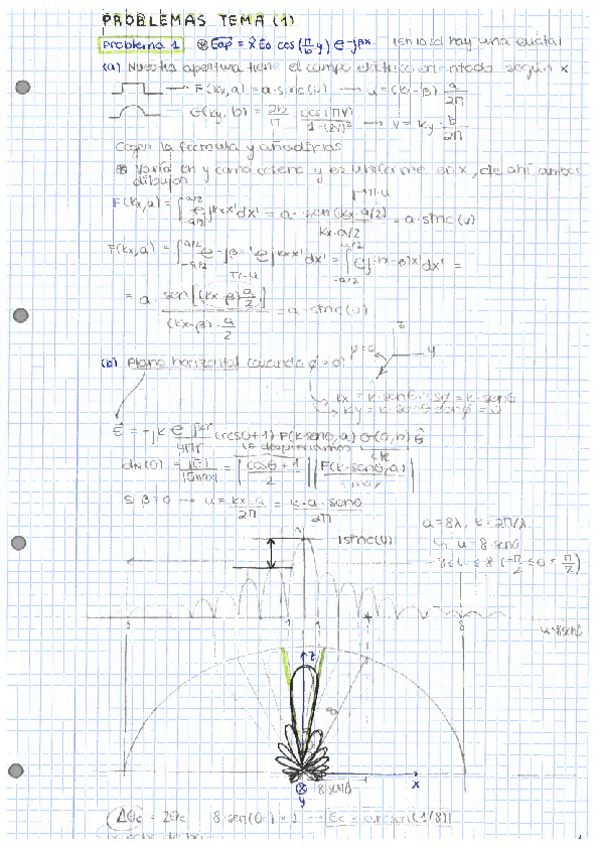 PROBLEMAS TEMA (1)
Problema 1 ⊗ Eap = x̂ E0 cos(π/b y) e^-jβx (si no sol hay una
(a) Nuestra apertura tiene el campo eléctrico orientado según x
→ F(kx,a) = a·sinc(u) → u = (k - β) a/2π
→ G(ky,b) = 2b/π cos(πv)/1-(2v)² → v = ky · b/2π
Coger la fórmula y añadirlas
Varía en y como coseno y es uniforme en x, de ahí ambos
dibujos
π·u
F(kx,a) = ∫ e^jkxx' dx' = a · sen(kx·a/2) / kx·a/2 = a·sinc(u)
F(kx,a) = ∫ e^-jβx' e^jkxx' dx' = ∫ e^j(kx-β)x' dx' =
π·u
= a · sen[(kx-β) a/2] / (kx-β)·a/2 = a·sinc(u)
(b) Plano horizontal cuando φ=0
φ=0 z y
kx = k·senθ·cosφ = k·senθ
ky = k·senθ·senφ = 0
E = -jk e^-jkr/4πr (cosθ+1) F(k·senθ,a) G(0,b) θ̂
lo despreciamos cte
dN(θ) = |E|/|Emax| = |cosθ+1 / 2| |F(k·senθ,a) / max|
Si β=0 → u = kx·a/2π = k·a·senθ/2π
a=8λ, k=2π/λ
|sinc(u)|
u=8·senθ
-8≤u≤8 (-π/2≤θ≤π/2)
u=8senθ
z
8
x
8·senθ
y
Δθc = 2θc 8·sen(θc)=1 → θc = arcsen(1/8)